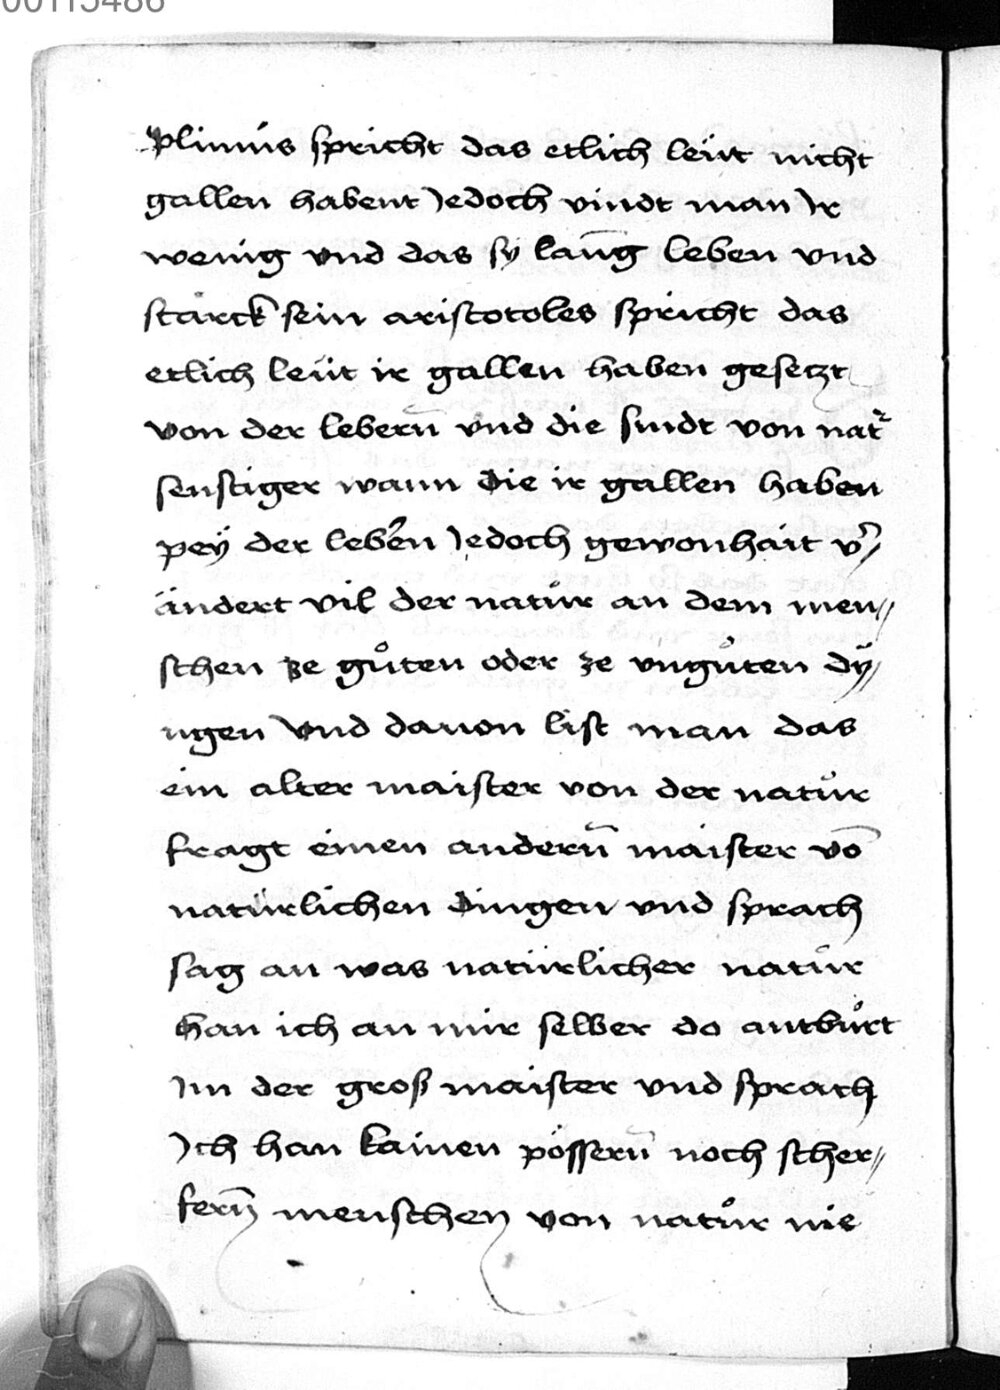 00113486
Plinius spricht das etlich leüt nicht
gallen habent Jedoch vindt man Ir
wenig vnd das sÿ lan̄g leben vnd
starck sein aristotoles spricht das
etlich leüt ir gallen haben gesetzt
von der lebern̄ vnd die sindt von nat᷑
senftiger wann die ir gallen haben
peÿ der leb̄en Jedoch gewonhait v᷑//
ändert vil der natůr an dem men//
schen ze gůten oder ze vngůten dÿ//
ngen Vnd dauon list man das
ein alter maister von der natůr
fragt einen andern̄ maister vō
natürlichen dingen vnd sprach
sag an was natürlicher natůr
han ich an mir selber do antbůrt
Im der groß maister vnd sprach
Ich han kainen pössern̄ noch scher//
fern̄ menschen von natůr nie